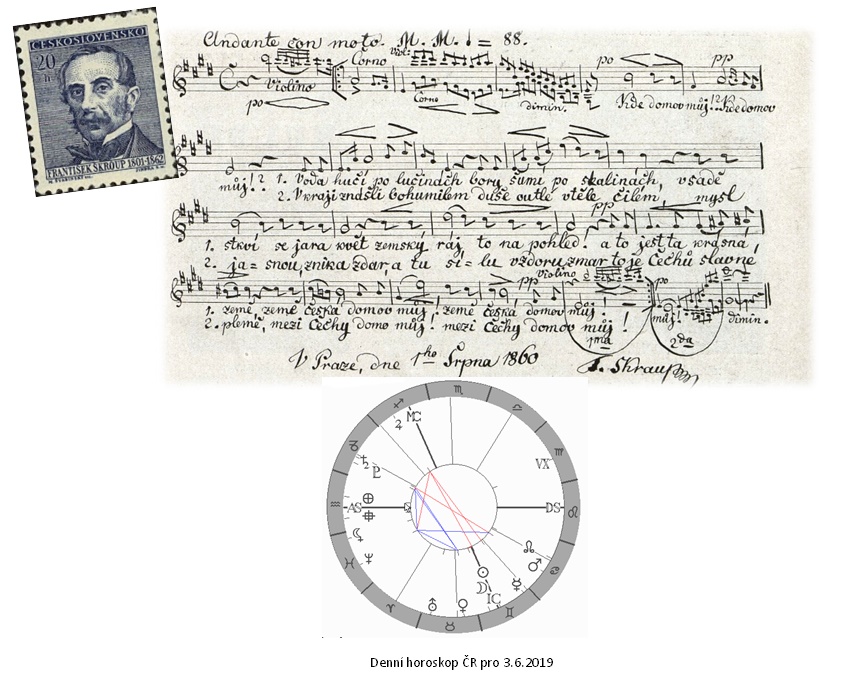 ČESKOSLOVENSKO
20
h
FRANTIŠEK ŠKROUP 1801-1862
Andante con moto. M. M. = 88.
Corno
Viol:
Violino
po
Corno
dimin.
po
pp
Kde domov můj!? Kde domov
můj!? 1. Voda hučí po lučinách bory šumí po skalinách, všadě
2. V kraji znášli bohumilém duše outlé v těle čilém, mysl
pp
1. stkví se jara květ zemský ráj to na pohled! a to jest ta krásná,
2. ja=snou, znika zdar, a tu sí=lu vzdoru zmar to je Čechů slavné
pp
Violino
po
1. země, země česká domov můj, země česká domov můj!
můj!
dimin.
2. plémě, mezi Čechy domo můj! mezi Čechy domov můj!
1ma
2da
V Praze, dne 1ho Srpna 1860
F. Skraup
MC
VX
AS
DS
IC
Denní horoskop ČR pro 3.6.2019